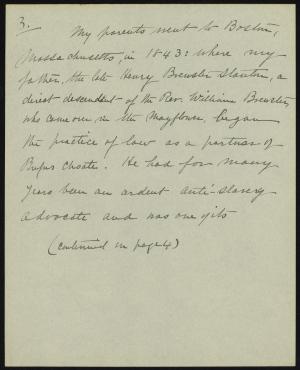 3.
My parents went to Boston,
Massachusetts, in 1843: where my
father, the late Henry Brewster Stanton, a
direct descendent of the Rev. William Brewster,
who came over in the Mayflower, began
the practice of law as a partner of
Rufus Choate. He had for many
years been an ardent anti-slavery
advocate and was one of its
(continued on page 4)